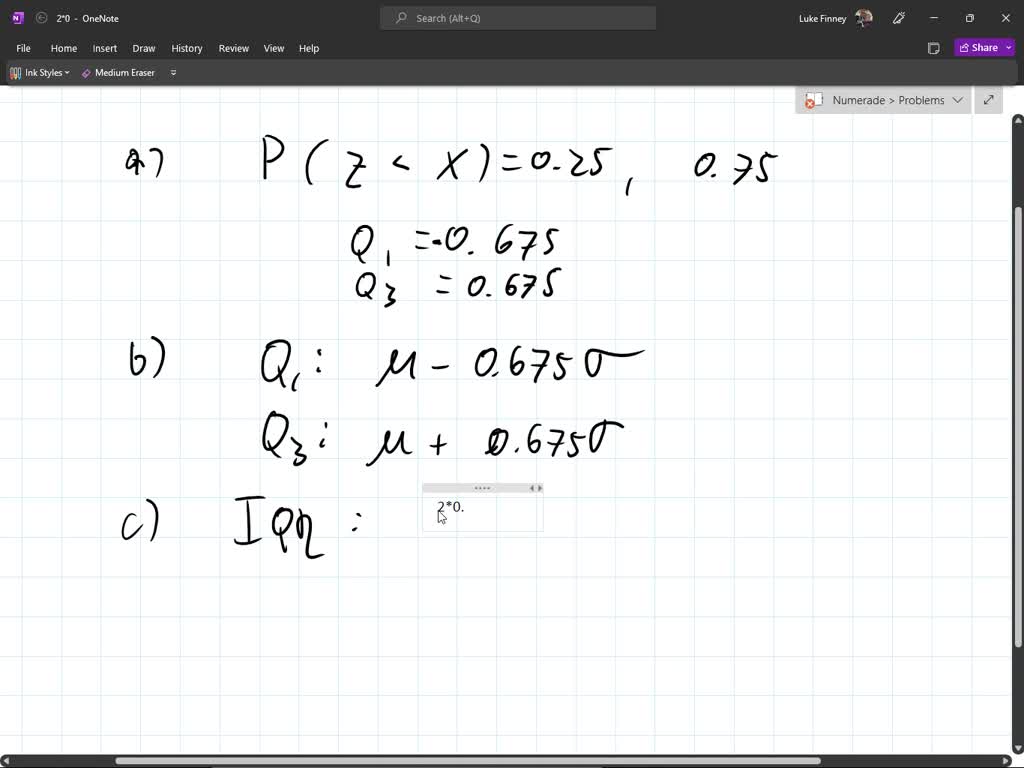 2*0 - OneNote
Search (Alt+Q)
Luke Finney
File Home Insert Draw History Review View Help
Share
Ink Styles Medium Eraser
Numerade > Problems
a) P(z < X) = 0.25, 0.75
Q1 = -0.675
Q3 = 0.675
b) Q1: μ - 0.675σ
Q3: μ + 0.675σ
2*0.
c) IQR :